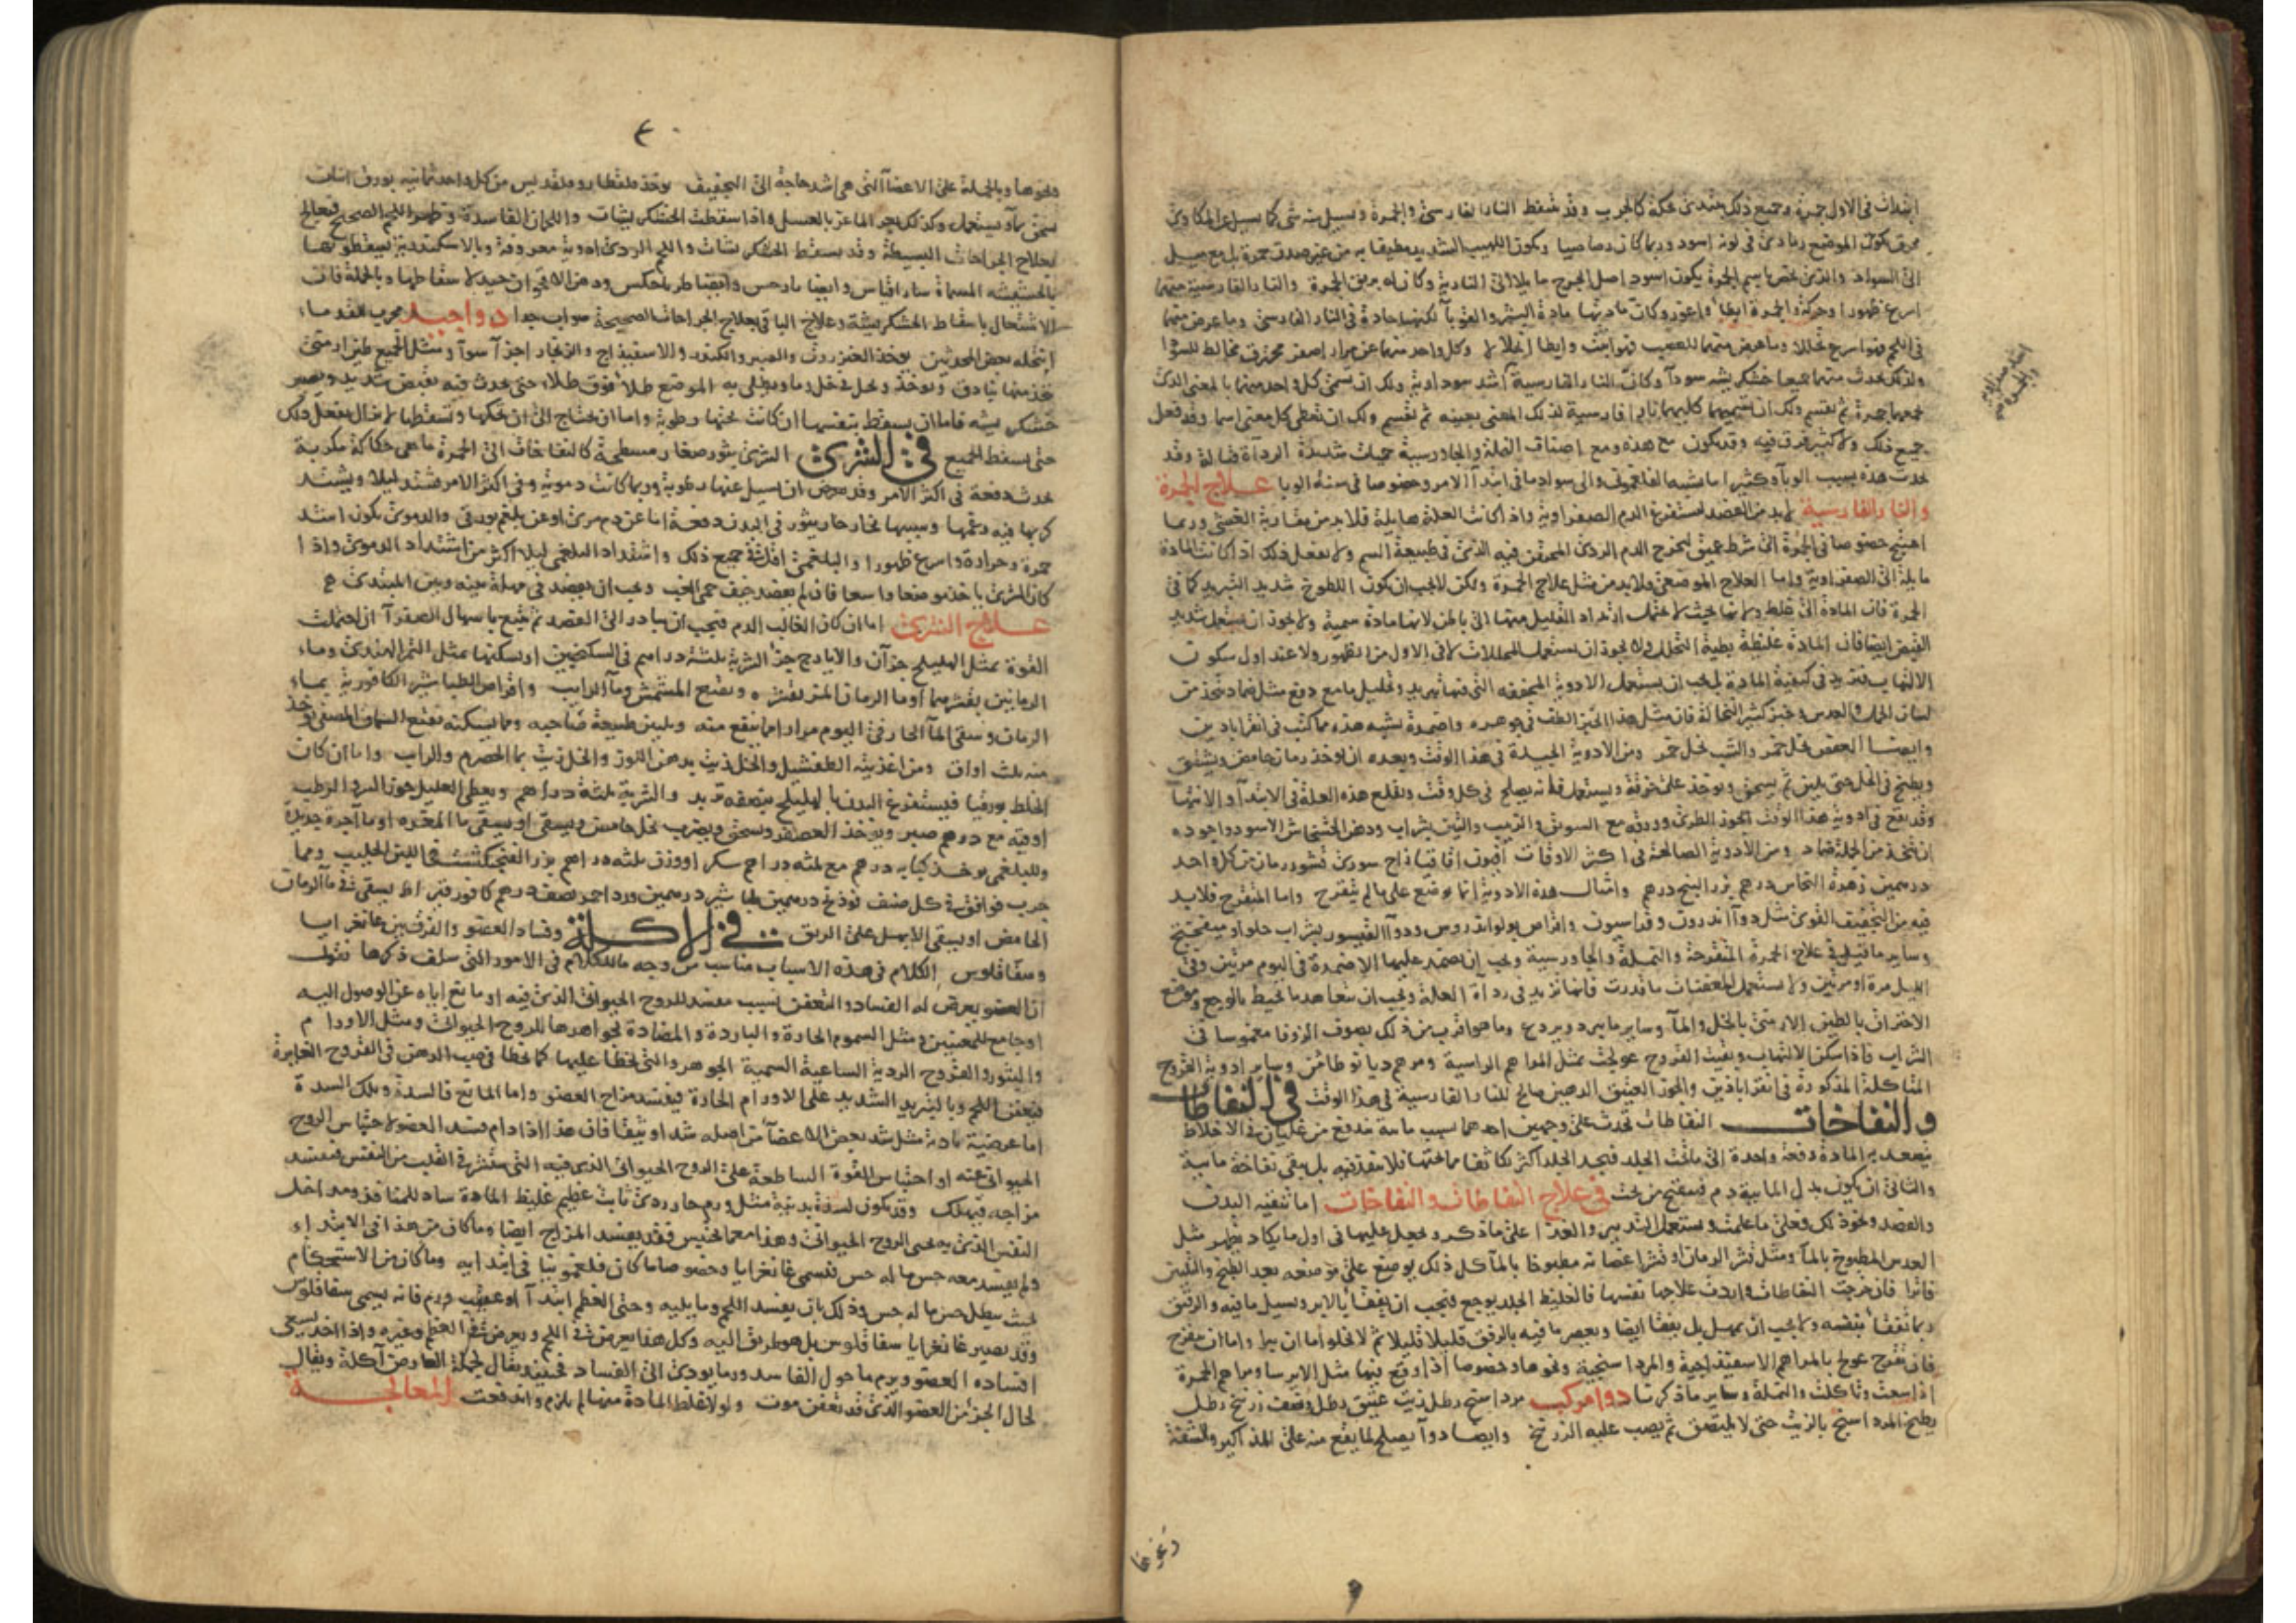 ابتدأت فى الاول جمرة وجميع ذلك يبتدئ بحكة كالجرب وقد تنفط النار الفارسى والجمرة ويسيل منه شى كما يسيل عن المكاوى
محرق يكون الموضع رمادى فى لونه اسود وربما كان رصاصيا ويكون اللهيب الشديد مطيفا به من غير صدق حمرة بل مع ميل
الى السواد والذى يخص باسم الجمرة يكون اسود اصل الجرح مايلا الى النارية وكان له بريق الجمرة والنار الفارسية منهما
اسرع ظهورا وحركة والجمرة ابطا واغور وكان مادتها مادة البثر والقوبا لكنها حادة فى النار الفارسى وما عرض منهما
فى اللحم فهو اسرع تحللا وما عرض منهما للعصب فهو اثبت وابطا انحلالا وكل واحد منهما عن مرار اصفر محترق مخالط للسودا
ولذلك يحدث منهما جميعا خشكريشه سودا وكان النار الفارسية اشد سوداوية ولك ان تسمى كل واحد منهما بالمعنى الذى
يجمعهما جمرة ثم تقسم ولك ان تسميهما كليهما نارا فارسية لذلك المعنى بعينه ثم تقسم ولك ان تعطى كل معنى اسما وقد فعل
جميع ذلك ولا كثير فرق فيه وقد يكون مع هذه ومع اصناف النملة والجاورسية حميات شديدة الرداة قتالة وقد
تحدث هذه بسبب الوبا وكثيرا ما تشبه الفلغمونى والى سواد ما فى ابتدا الامر وخصوصا فى سنة الوبا علاج الجمرة
والنار الفارسية لابد من الفصد ليستفرغ الدم الصفراوى واذا كانت العلة هايلة فلابد من مقاربة الغشى وربما
احتيج خصوصا فى الجمرة الى شرط عميق ليخرج الدم الردى المحتقن فيه الذى فى طبيعة السم ولا يفعل ذلك اذا كانت المادة
مايلة الى الصفراوية واما العلاج الموضعى فلابد من مثل علاج الحمرة ولكن لا يجب ان يكون اللطوخ شديد التبريد كما فى
الحمرة فان المادة الى غلظ ولانها بحيث لا يحتمل ارتداد القليل منها الى باطن لانها مادة سمية ولا يجوز ان يستعمل شديد
القبض ايضا فان المادة غليظة بطية التحلل ولا يجوز ان يستعمل المحللات لا فى الاول من الظهور ولا عند اول سكون
الالتهاب فتزيد فى كيفية المادة بل يجب ان يستعمل الادوية المجففه التى فيها تبريد وتحليل ما مع دفع مثل ضماد يتخذ من
لسان الحمل والعدس وخبز كثير النخالة فان مثل هذا الخبز الطف فى جوهره واضمدة شبيه هذه مما كتب فى اقراباذين
وايضا العفص بخل خمر والشب بخل خمر ومن الادوية الجيدة فى هذا الوقت وبعده ان يوخذ رمان حامض ويشقق
ويطبخ فى الخل حتى يلين ثم يسحق ويوخذ على خرقة ويستعمل فانه يصلح فى كل وقت ويقلع هذه العلة فى الابتدا والانتها
وقد يقع فى ادوية هذا الوقت الجوز الطرى وورقه مع السويق والزبيب والتين بشراب ودهن الخشخاش الاسود واجوده
ان يتخذ من الجملة ضماد ومن الادوية الصالحة فى اكثر الاوقات افيون اقاقيا زاج سورى قشور رمان من كل واحد
درهمين زهرة النحاس درهم بزر البنج درهم وامثال هذه الادوية انما توضع على ما لم يتقرح واما المتقرح فلابد
فيه من التجفيف القوى مثل دوا اندرون وفراسيون واقراص بولو اندروس ودوا القيسور بشراب حلو او ميفختج
وساير ما قيل فى علاج الحمرة المتقرحة والنملة والجاورسية ويجب ان تضمد عليها الاضمدة فى اليوم مرتين وفى
الليل مرة او مرتين ولا يستعمل المعفنات ما قدرت فانها تزيد فى رداة العلة ويجب ان يتعاهد ما يحيط بالوجع وموضع
الاحتراق بالطين الارمنى بالخل والما وساير ما يبرد ويردع وما هو اقرب من ذلك بصوف الزوفا مغموسا فى
الشراب فاذا سكن الالتهاب وبقيت القروح عولجت بمثل المراهم الراسية ومرهم ديانوطاس وساير ادوية القروح
المتاكلة المذكورة فى اقراباذين والجوز العتيق الدهين صالح للنار الفارسية فى هذا الوقت فى النفاطات
والنفاخات النفاطات تحدث على وجهين احدهما بسبب ماية تندفع من غليان فى الاخلاط
تصعد به المادة دفعة واحدة الى ما تحت الجلد فتجد الجلد اكثر تكاثفا مما تحتها فلا تنفذ فيه بل يبقى نفاخة مايية
والثانى ان يكون بدل المايية دم فيتقيح من تحت فى علاج النفاطات والنفاخات اما تنقية البدن
والفصد ونحو ذلك فعلى ما علمت ويستعمل التدبير والغذا على ما ذكر ويجعل عليها فى اول ما يكاد يظهر مثل
العدس المطبوخ بالما ومثل قشر الرمان او قشر اغصانه مطبوخا بالما كل ذلك يوضع على موضعه بعد الطبخ والتليين
فاترا فان خرجت النفاطات واردت علاجها نفسها فالغليظ الجلد يوجع فيجب ان يفقا بالابر ويسيل ما فيه والرقيق
ربما تفقا بنفسه ولا يجب ان يمهل بل يفقا ايضا ويعصر ما فيه بالرفق قليلا قليلا ثم لا يخلو اما ان يبرا واما ان يتقرح
فان تقرح عولج بالمراهم الاسفيذاجية والمرداسنجية ونحوها وخصوصا اذا وقع فيها مثل الايرسا ومراهم الحمرة
اذا سعت وتاكلت والنملة وساير ما ذكرنا دوا مركب مرداسنج رطل زيت عتيق رطل ونصف زرنيخ رطل
يطبخ المرداسنج بالزيت حتى لا يلتصق ثم يصب عليه الزرنيخ وايضا دوا يصلح لما يقع منه على المذاكير والشفة
ونحوها
ونحوها وبالجملة على الاعضا التى هى اشد حاجة الى التجفيف يوخذ قلقطار وقلقديس من كل واحد ثمانيه بورق اثنان
يسحق بما ويستعمل وكذلك بعر الماعز بالعسل واذا سقطت الخشكريشات واللحمان الفاسدة وظهر اللحم الصحيح فيعالج
بعلاج الجراحات البسيطة وقد يسقط الخشكريشات واللحم الردى ادوية معروفة وبالاسكندرية يسقطونها
بالحشيشه المسماة
الاشتغال باسقاط الخشكريشة وعلاج الباقى بعلاج الجراحات الصحيحة صواب جدا دوا جيد مجرب للقدماء
انتحله بعض المحدثين يوخذ العنزروت والصبر والكندر والاسفيذاج والزنجار اجزا سوا ومثل الجميع طين ارمنى
حتى يحدث فيه تقبض شديد ويصير
خشكريشه فاما ان يسقط بنفسها ان كانت تحتها رطوبة واما ان يحتاج الى ان تحكها وتسقطها لا تزال تفعل ذلك
حتى يسقط الجميع فى الشرى الشرى بثور صغار مسطحة كالنفاخات الى الحمرة ما هى حكاكة مكربة
تحدث دفعة فى اكثر الامر وقد يعرض ان يسيل عنها رطوبة وربما كانت دموية وفى اكثر الامر تشتد ليلا ويشتد
كربها فيه وغمها وسببها بخار حار يثور فى البدن دفعة اما عن دم مرى او عن بلغم بورقى والدموى يكون اشد
حمرة وحرارة واسرع ظهورا والبلغمى اقل فى جميع ذلك واشتداد البلغمى ليلا اكثر من اشتداد الدموى واذا
كان الشرى ياخذ موضعا واسعا فان لم يفصد خيف حمى الغب ويجب ان يفصد فى مهلة بينه وبين المبتدئ
علاج الشرى اما ان كان الغالب الدم فيجب ان يبادر الى الفصد ثم يتبع باسهال الصفرا ان احتملت
القوة بمثل الهليلج جزآن والايارج جز الشربة ثلثة دراهم فى السكنجبين او يسكنها بمثل التمر الهندى وماء
الرمانين بقشرهما او ما الرمان المز بقشره ونقيع المشمش وما الرايب واقراص الطباشير الكافورية بماء
الرمان وسقى الما الحار فى اليوم مرارا مما ينفع منه ويلين طبيعة صاحبه ومما يسكنه نقيع السماق المصفى يوخذ
منه ثلث اواق ومن اغذيته الطفشيل والخل زيت بدهن اللوز والخل زيت بما الحصرم والرايب واما ان كان
الخلط بورقيا فيستفرغ البدن بالهليلج بنصفه تربد والشربة ثلثة دراهم ويعطى العليل جوز السرو الرطب
اوقيه مع درهم صبر ويوخذ العصفر ويسحق ويضرب بخل حامض ويسقى او يسقى ما المغره او ما آجرة جديدة
وللبلغمى يوخذ كبابه درهم مع ثلثه دراهم سكر او وزن ثلثه دراهم بزر الفنجنكشت فى اللبن الحليب ومما
جرب فوافق فى كل صنف فوذنج درهمين طباشير درهمين ورد احمر نصف درهم كافور قيراط يسقى فى ما الرمان
الحامض او يسقى الابهل على الريق فى الاكلة وفساد العضو والفرق بين غانغرايا
وسفاقلوس الكلام فى هذه الاسباب مناسب من وجه ما للكلام فى الامور التى سلف ذكرها فنقول
ان العضو يعرض له الفساد والتعفن بسبب مفسد للروح الحيوانى الذى فيه او مانع اياه عن الوصول اليه
او جامع للمعنيين ومثل السموم الحارة والباردة والمضادة بجواهرها للروح الحيوانى ومثل الاورام
والبثور والقروح الردية الساعية السمية الجوهر والتى يخطا عليها كما يخطا فى صب الدهن فى القروح الغايرة
فيعفن اللحم وبالتبريد الشديد على الاورام الحادة فيفسد مزاج العضو واما المانع فالسدة وتلك السدة
اما عرضية بادية مثل شد بعض الاعضا من اصله شدا وثيقا فان هذا اذا دام فسد العضو لاحتباس الروح
الحيوانى عنه او احتباس القوة الساطعة على الروح الحيوانى الذى فيه التى تنتشر فى القلب من النفس فيفسد
مزاجه فيهلك وقد يكون لسدة بدنية مثل ورم حار ردى ثابت عظيم غليظ المادة ساد للمنافذ ومداخل
النفس الذى به يحيى الروح الحيوانى وهذا مع ما يحتبس فقد يفسد المزاج ايضا وما كان من هذا فى الابتداء
ولم يفسد معه حس ما له حس فيسمى غانغرايا وخصوصا ما كان فلغمونيا فى ابتدايه وما كان من الاستحكام
بحيث يبطل حس ما له حس وذلك بان يفسد اللحم وما يليه وحتى العظم ابتدا او عقيب ورم فانه يسمى سفاقلوس
وقد يصير غانغرايا سفاقلوس بل هو طريق اليه وكل هذا يعرض فى اللحم ويعرض فى العظم وغيره واذا اخذ يسعى
افساده العضو ويرم ما حول الفاسد ورما يودى الى الفساد فحينئذ يقال لجملة العارض آكلة ويقال
لحال الجز من العضو الذى قد تعفن موت ولولا غلظ المادة منها لم يلزم واندفعت المعالجة